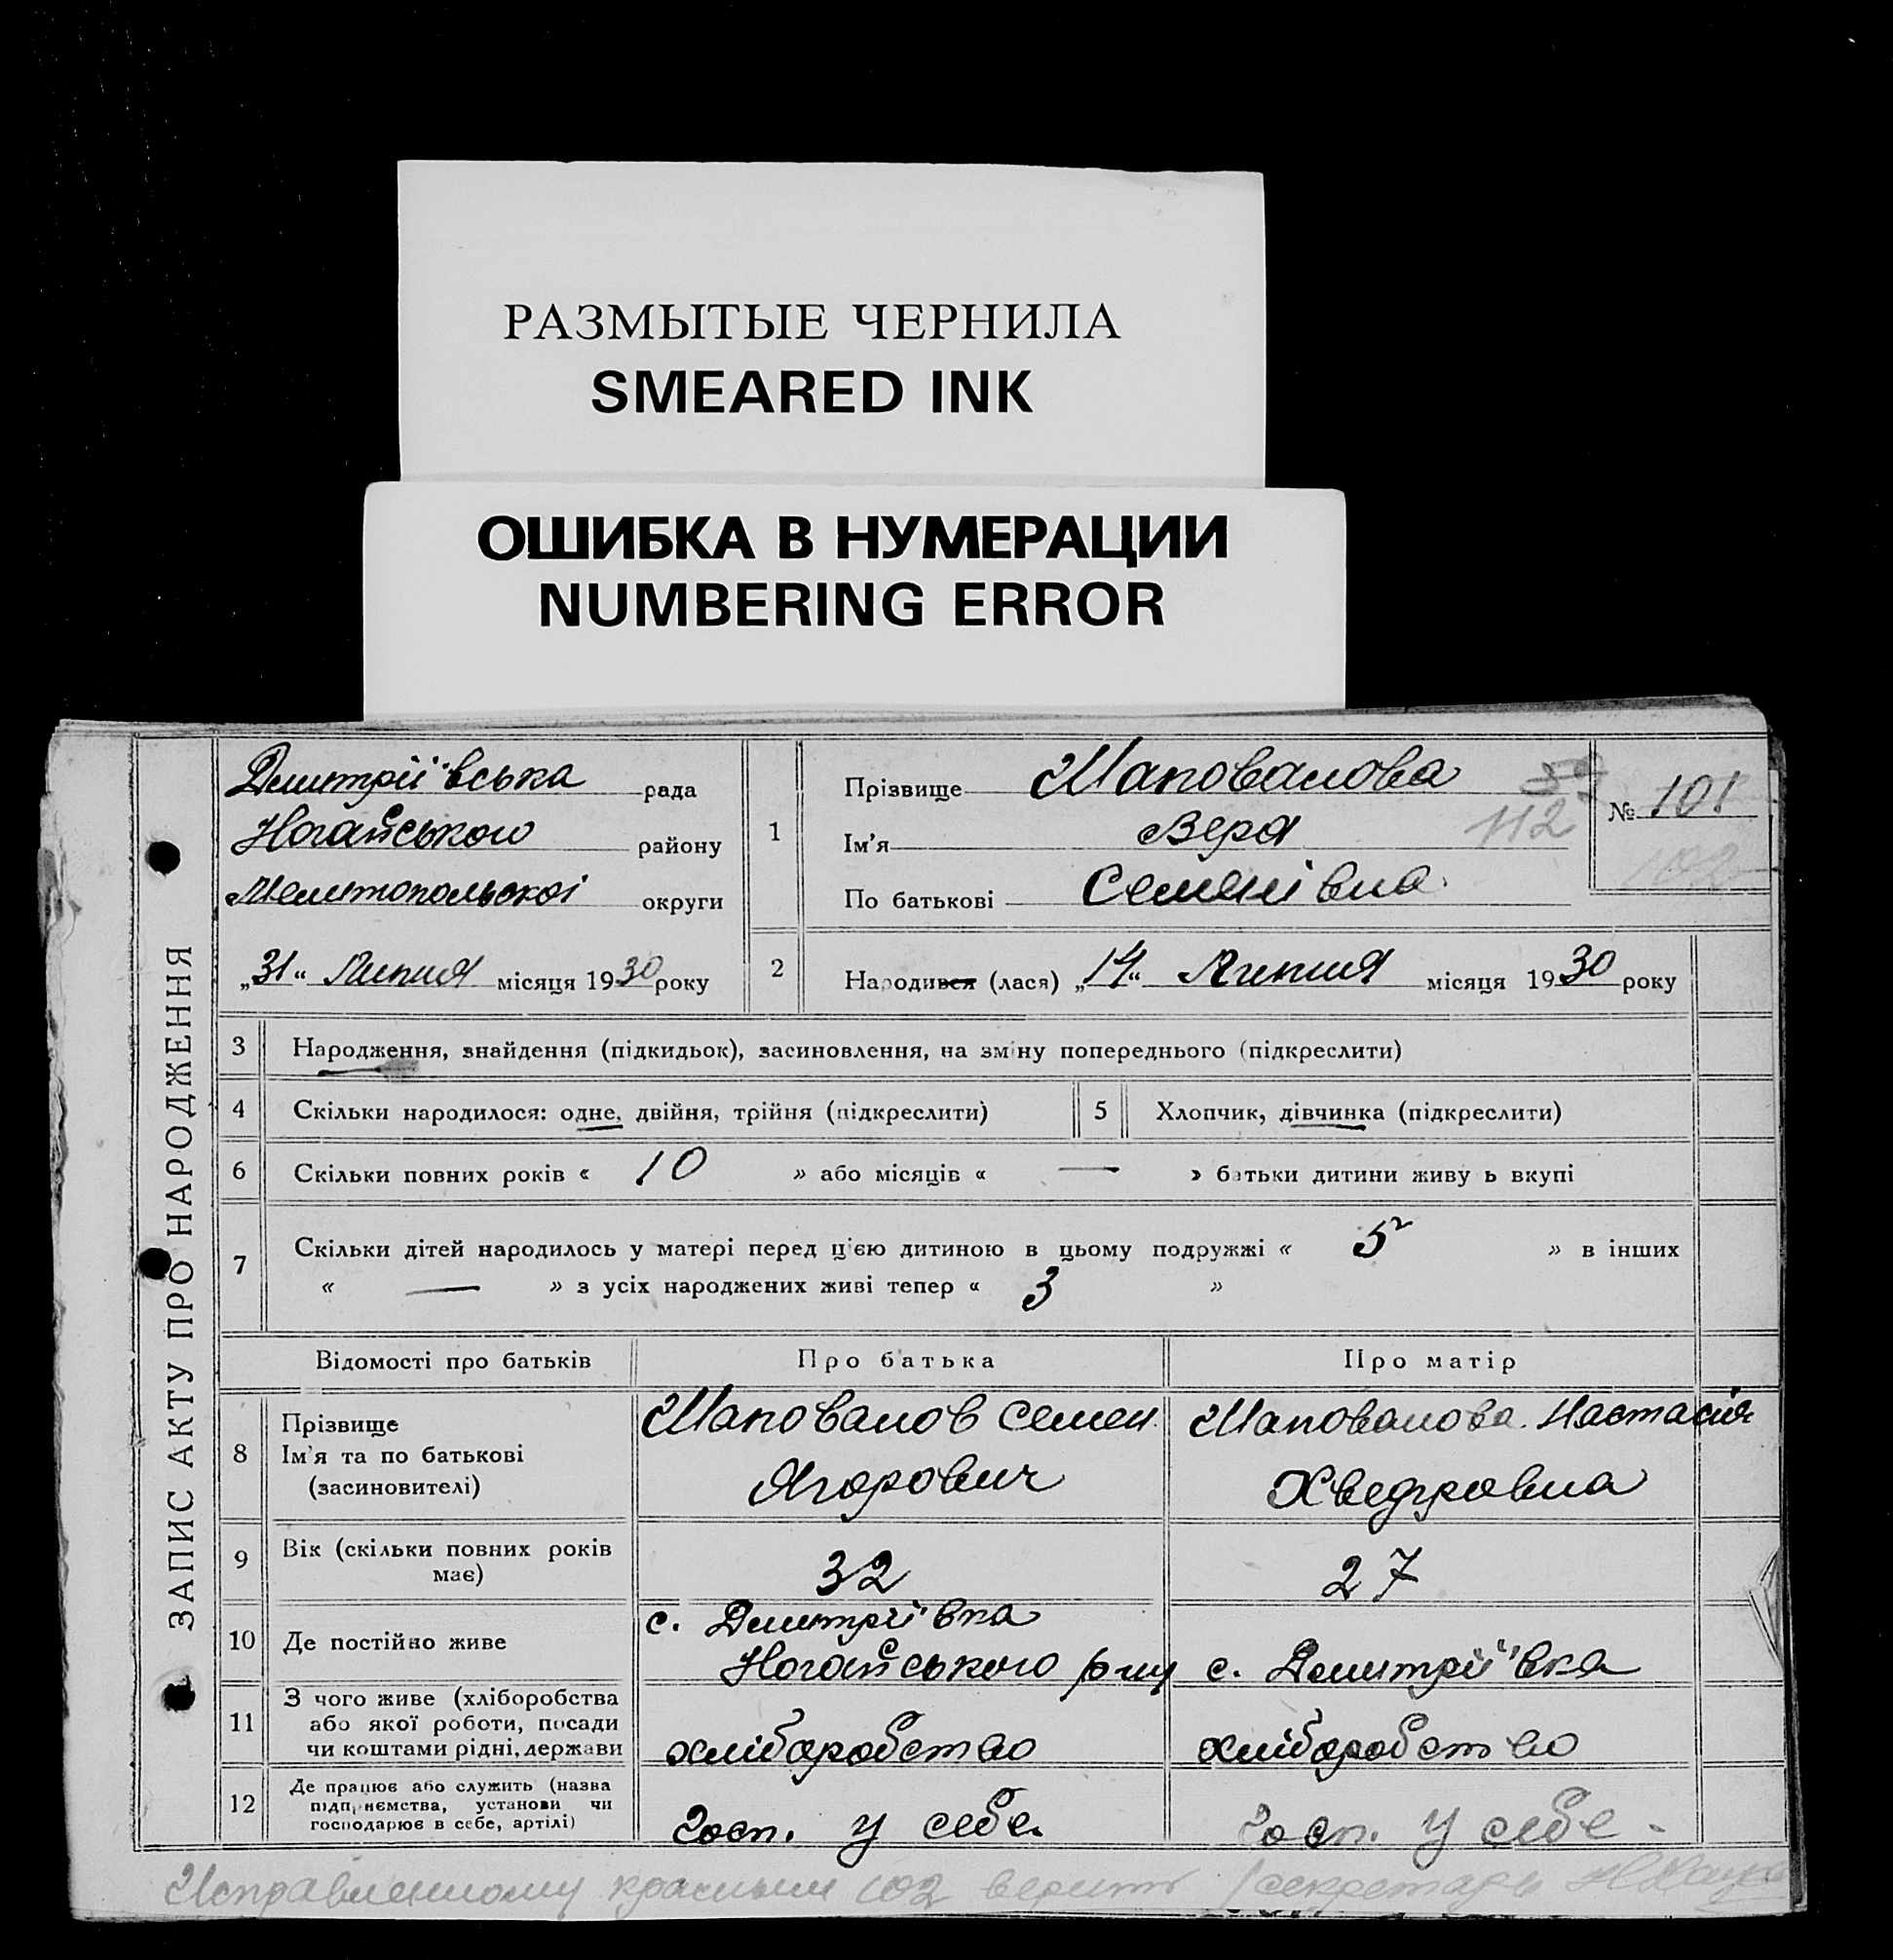 РАЗМЫТЫЕ ЧЕРНИЛА
SMEARED INK
ОШИБКА В НУМЕРАЦИИ
NUMBERING ERROR
ЗАПИС АКТУ ПРО НАРОДЖЕННЯ
Дмитріївська рада
Ногайського району
Мелітопольскої округи
„31“ Липня місяця 1930 року
1
Прізвище Шаповалова
59
Ім'я Вера
112
По батькові Семенівна
№ 101
102
2
Народився (лася) „14“ Липня місяця 1930 року
3 Народження, знайдення (підкидьок), засиновлення, на зміну попереднього (підкреслити)
4 Скільки народилося: одне, двійня, трійня (підкреслити) 5 Хлопчик, дівчинка (підкреслити)
6 Скільки повних років « 10 » або місяців « — » батьки дитини живу ь вкупі
7 Скільки дітей народилось у матері перед ц'єю дитиною в цьому подружжі « 5 » в інших
« — » з усіх народжених живі тепер « 3 »
Відомості про батьків Про батька Про матір
8 Прізвище
Ім'я та по батькові
(засиновителі)
Шаповалов Семен
Ягорович
Шаповалова Настасія
Хведровна
9 Вік (скільки повних років
має)
32
27
10 Де постійно живе
с. Дмитріївка
Ногайського р-ну
с. Дмитріївка
11 З чого живе (хліборобства
або якої роботи, посади
чи коштами рідні, держави
хліборобство
хліборобство
12 Де працює або служить (назва
підприємства, установи чи
господарює в себе, артілі)
госп. у себе.
госп. у себе.
Исправленному красным 102 верить секретарь